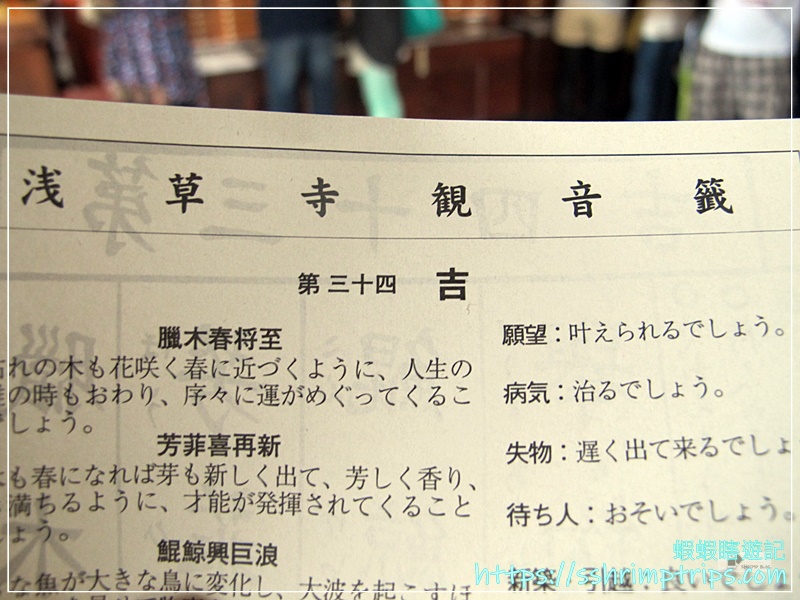 浅草寺観音籤
第三十四 吉
臘木春将至
れの木も花咲く春に近づくように、人生の
の時もおわり、序々に運がめぐってくるこ
でしょう。
芳菲喜再新
も春になれば芽も新しく出て、芳しく香り、
満ちるように、才能が発揮されてくること
しょう。
鯤鯨興巨浪
な魚が大きな鳥に変化し、大波を起こすほ
願望：叶えられるでしょう。
病気：治るでしょう。
失物：遅く出て来るでしょ
待ち人：おそいでしょう。
新築 引越：良いでしょ
蝦蝦臨遊記
https://sshrimptrips.com